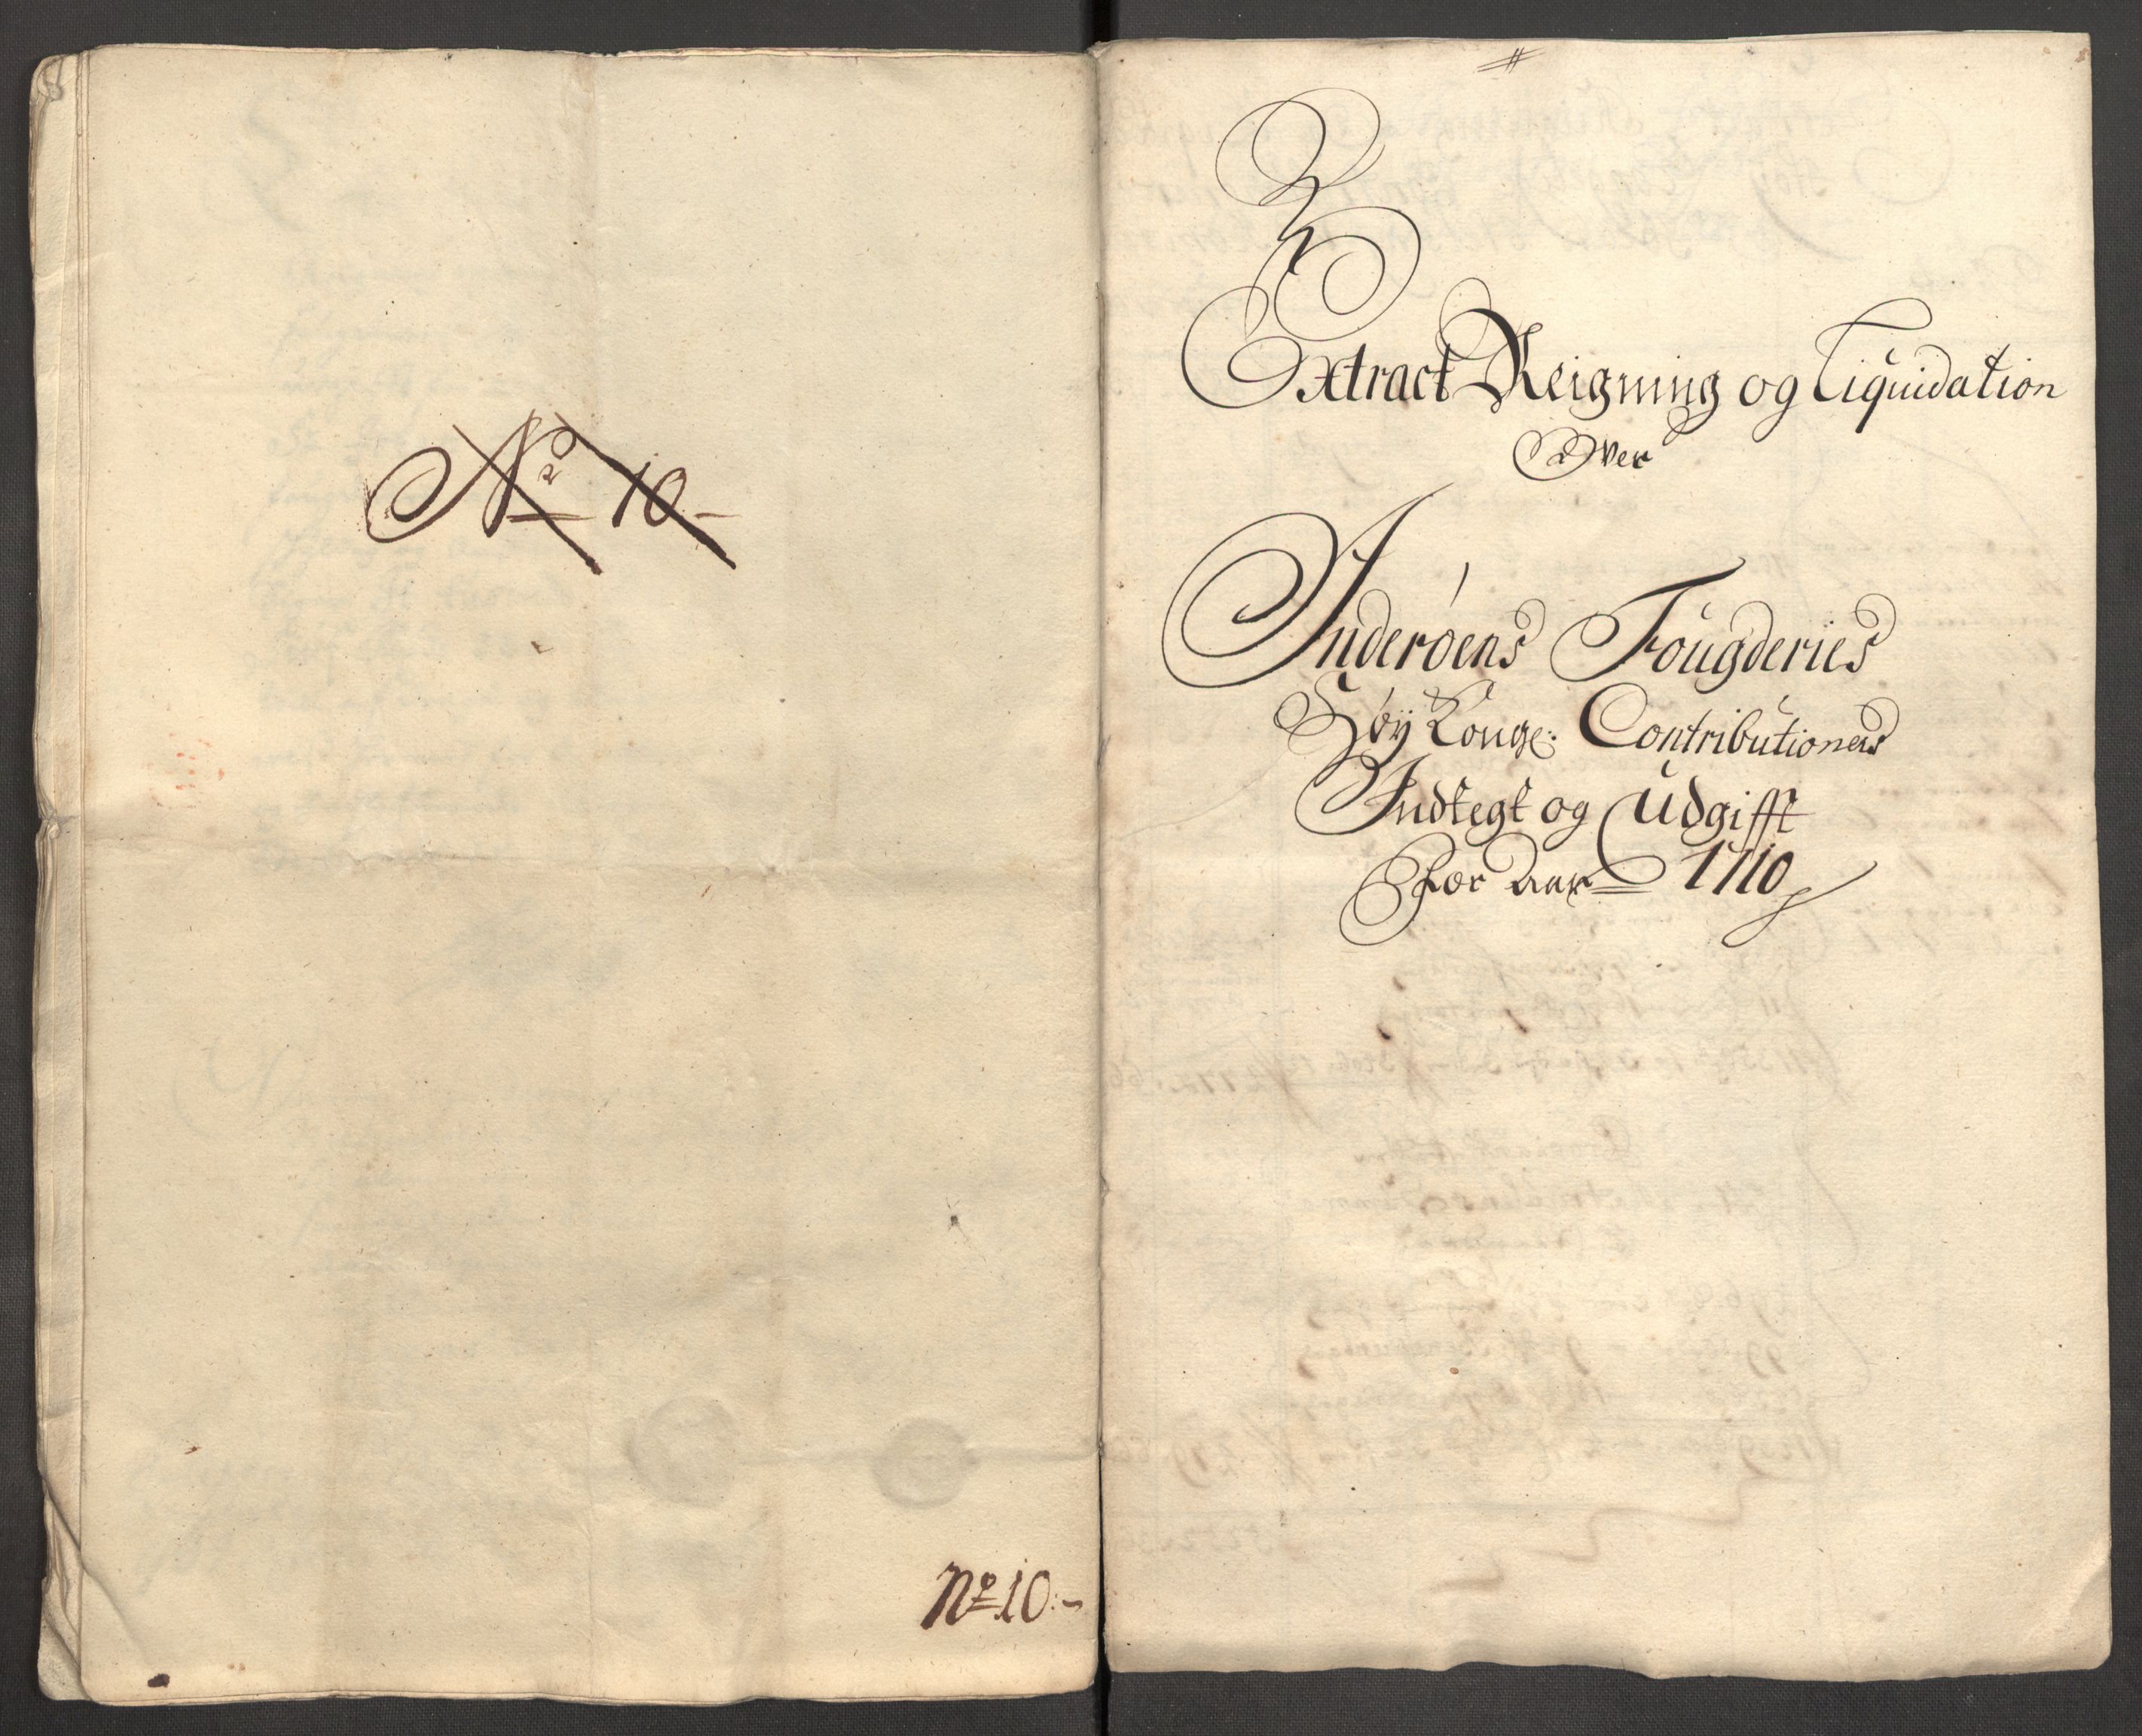 No 10-
No 10:-
Extract Reigning og Liquidation
Over
Inderøens Fougderies
Høy Konge: Contributioners
Indtegt og Udgifft
For Aar 1710